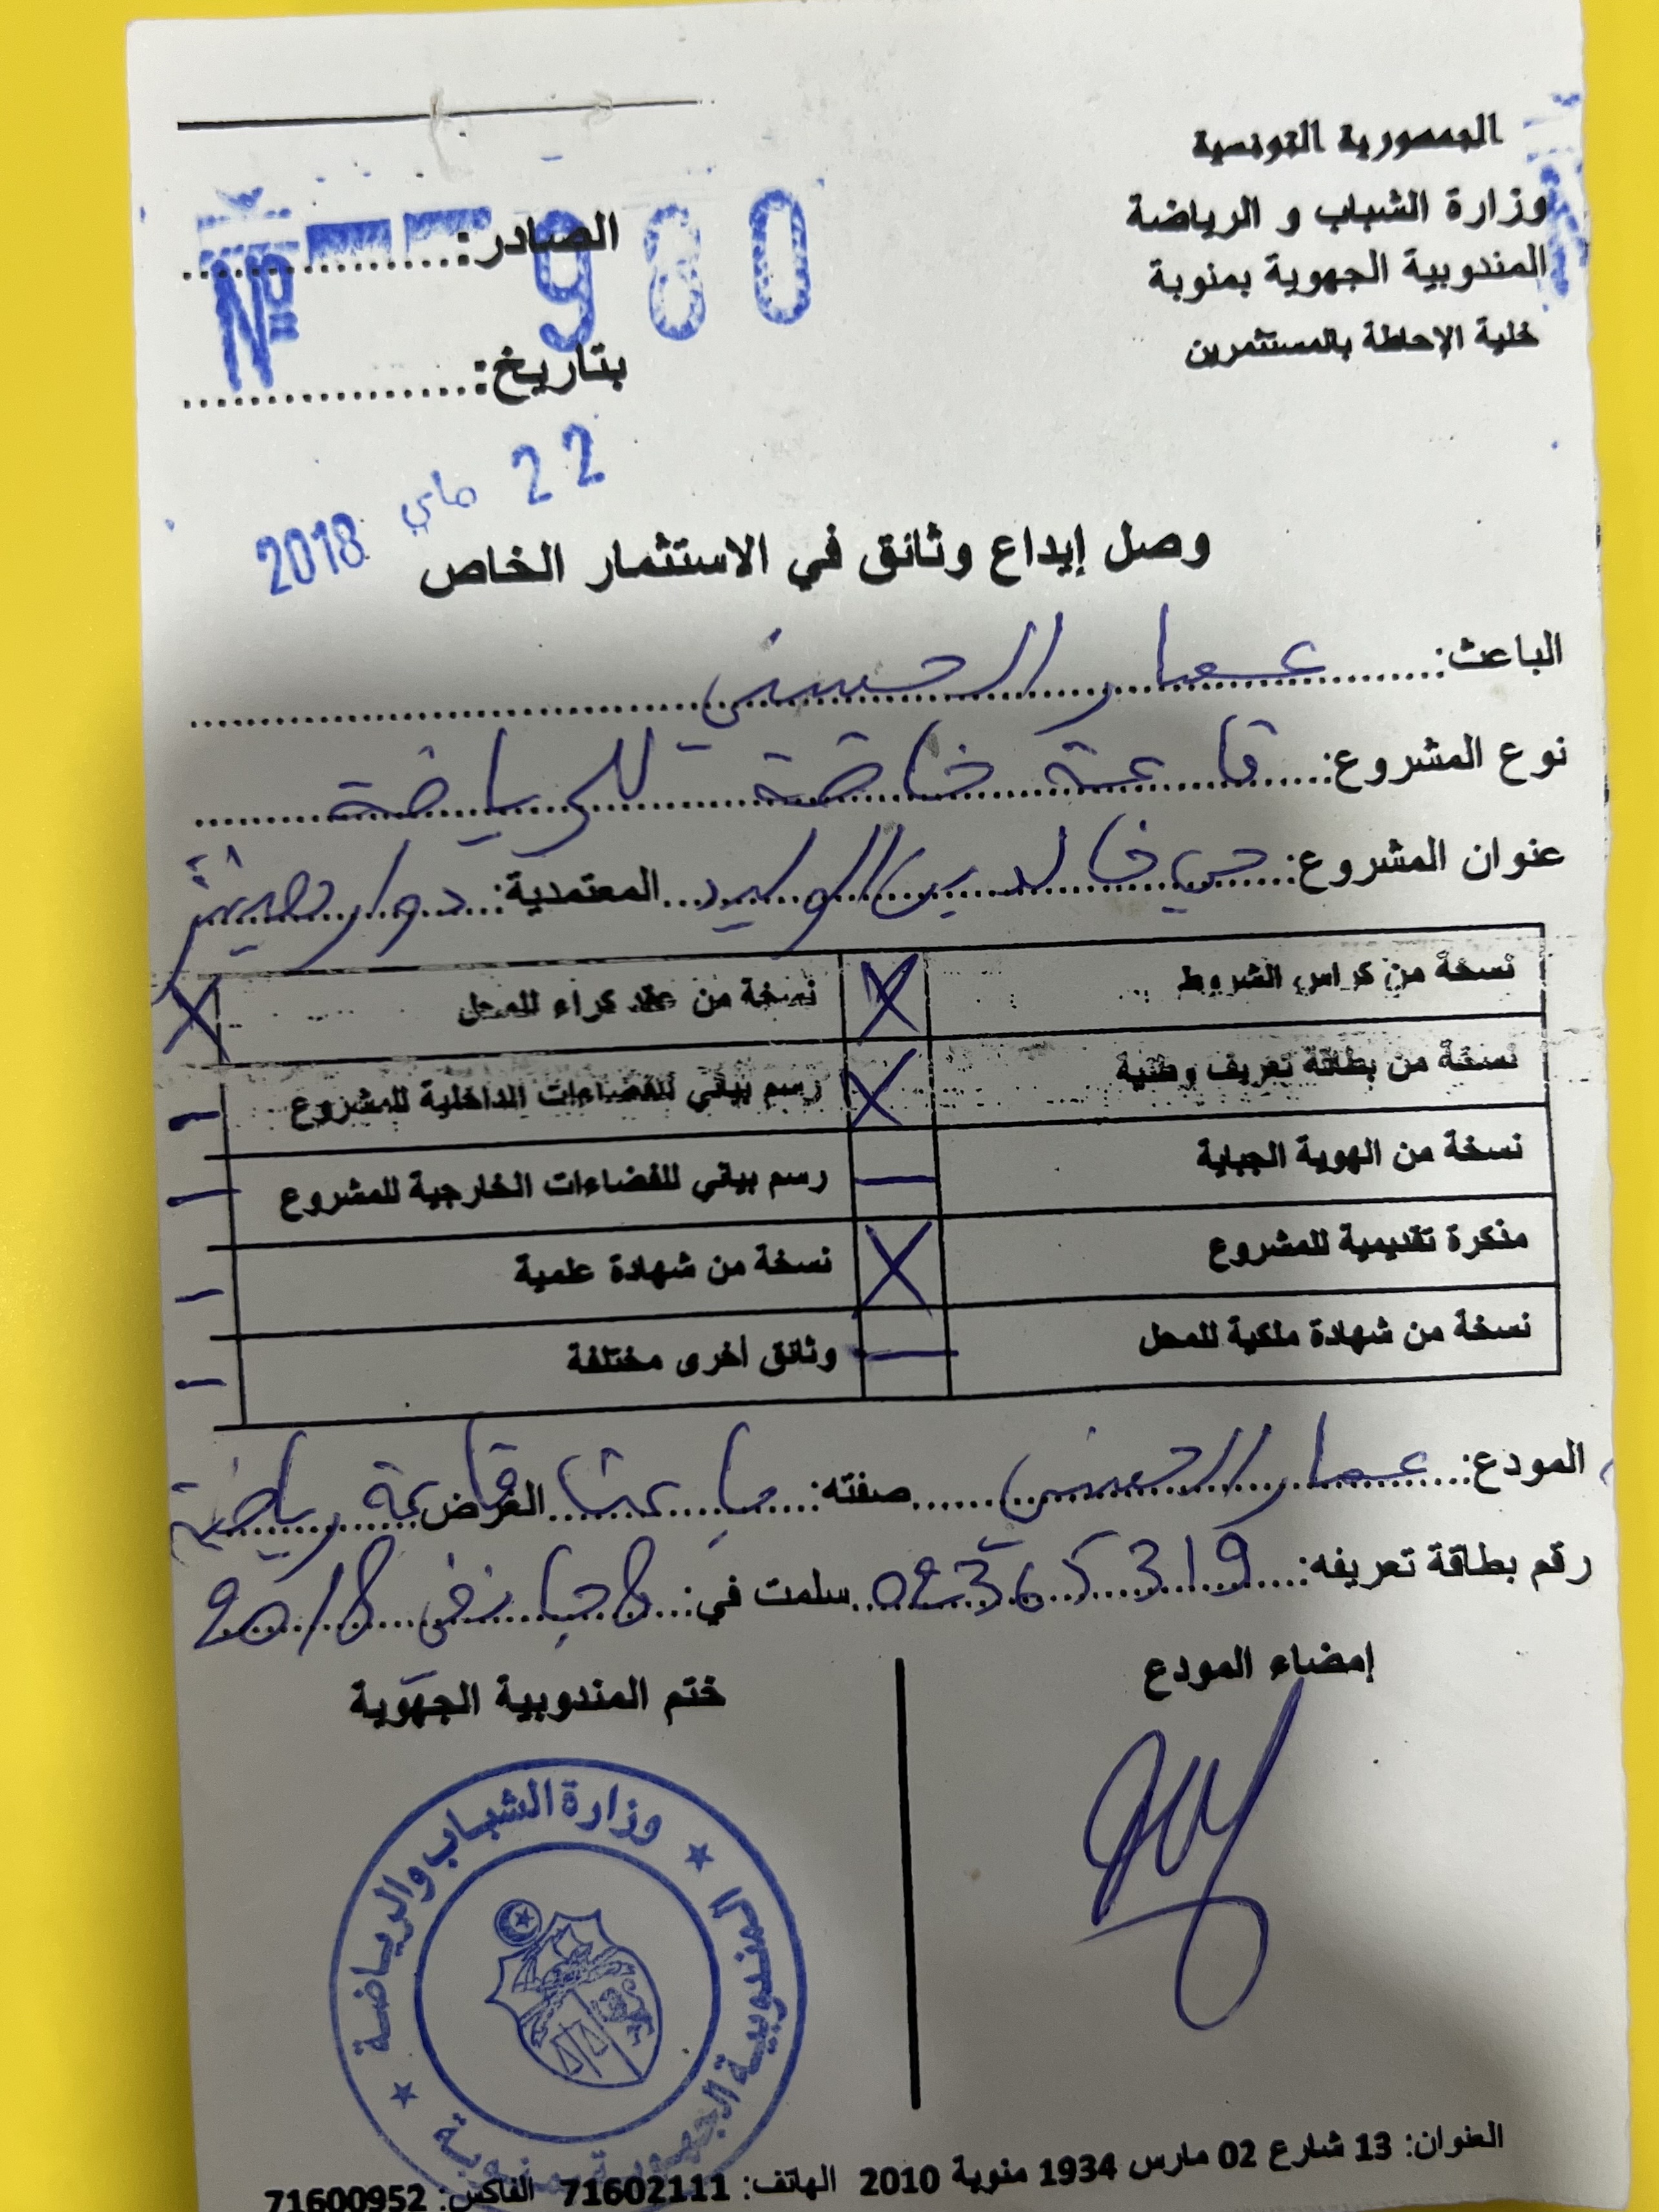 الجمهورية التونسية
وزارة الشباب و الرياضة
المندوبية الجهوية بمنوبة
خلية الإحاطة بالمستثمرين
الصادر:..................
№ 980
بتاريخ:..................
22 ماي 2018
وصل إيداع وثائق في الاستثمار الخاص
الباعث: عمار الحسني
نوع المشروع: قاعة خاصة للرياضة
عنوان المشروع: حي خالد بن الوليد المعتمدية: دوار هيشر
نسخة من كراس الشروط X نسخة من عقد كراء للمحل X
نسخة من بطاقة تعريف وطنية X رسم بياني للفضاءات الداخلية للمشروع –
نسخة من الهوية الجباية – رسم بياني للفضاءات الخارجية للمشروع –
مذكرة تقديمية للمشروع X نسخة من شهادة علمية –
نسخة من شهادة ملكية للمحل – وثائق أخرى مختلفة –
المودع: عمار الحسني صفته: باعث الغرض قاعة رياضة
رقم بطاقة تعريفه: 02365319 سلمت في: 8 جانفي 2018
إمضاء المودع
ختم المندوبية الجهوية
وزارة الشباب والرياضة
المندوبية الجهوية بمنوبة
العنوان: 13 شارع 02 مارس 1934 منوبة 2010 الهاتف: 71602111 الفاكس: 71600952